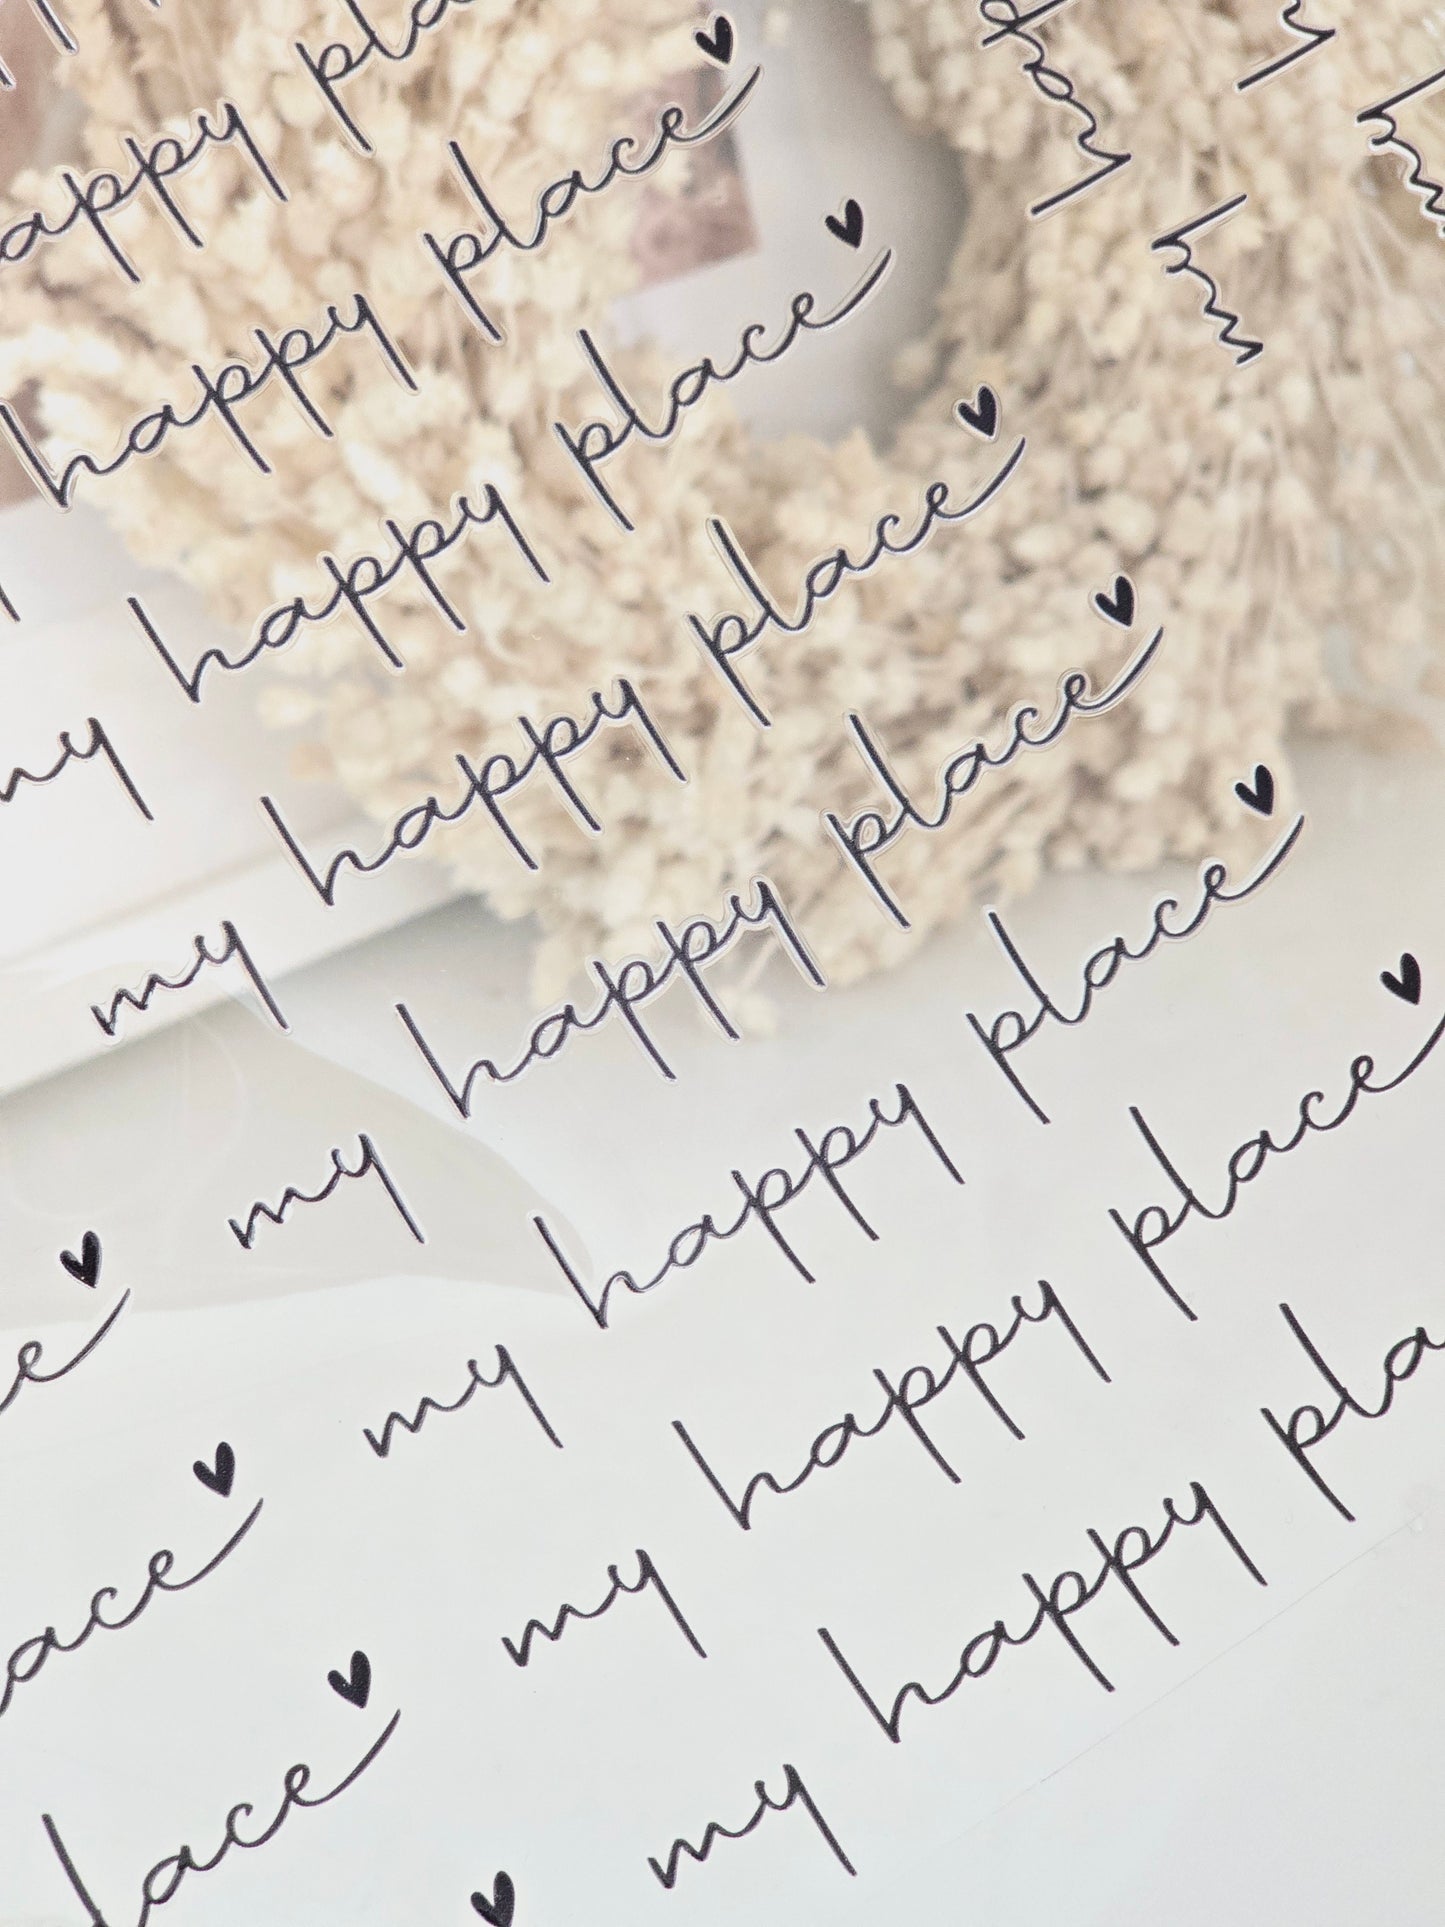 appy pla
happy place
my happy place
my happy place
my happy place
my happy place
my happy place
my happy pla
e
ace
lace
my